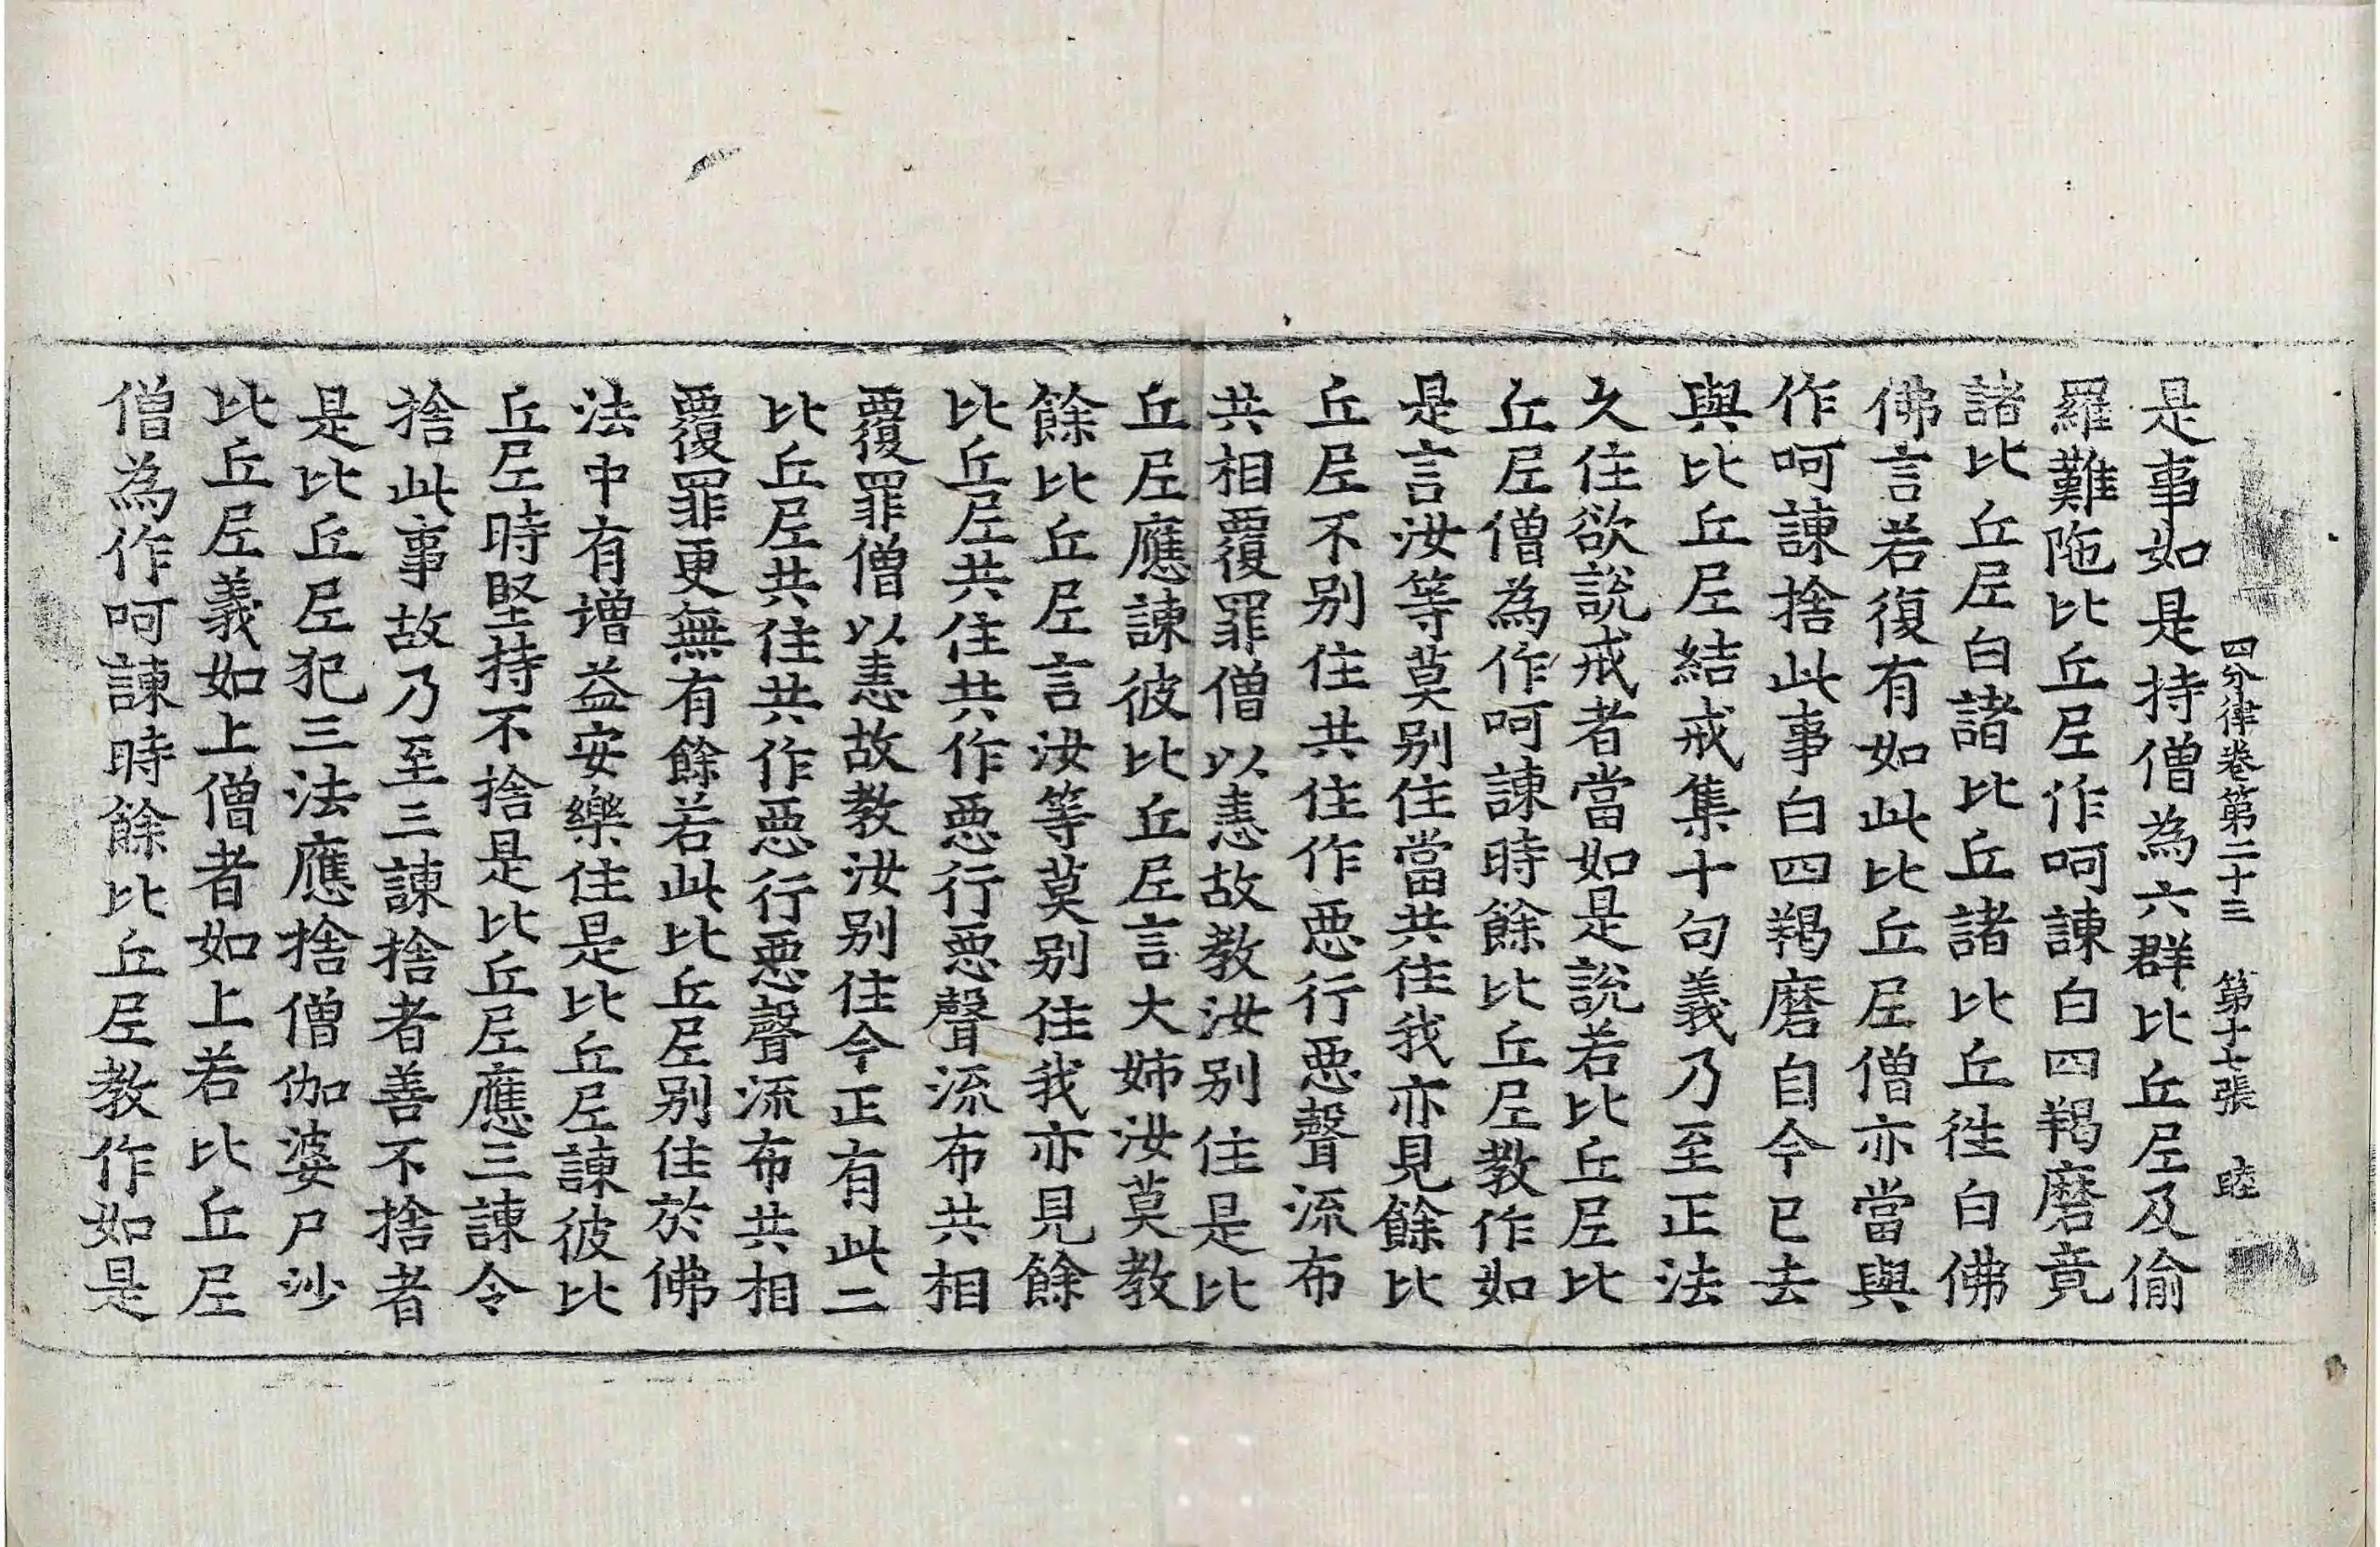 四分律卷第二十三 第十七張 睦
是事如是持僧為六群比丘尼及偷
羅難陁比丘尼作呵諫白四羯磨竟
諸比丘尼白諸比丘諸比丘徃白佛
佛言若復有如此比丘尼僧亦當與
作呵諫捨此事白四羯磨自今已去
與比丘尼結戒集十句義乃至正法
久住欲說戒者當如是說若比丘尼比
丘尼僧為作呵諫時餘比丘尼教作如
是言汝等莫別住當共住我亦見餘比
丘尼不別住共住作惡行惡聲流布
共相覆罪僧以恚故教汝別住是比
丘尼應諫彼比丘尼言大姊汝莫教
餘比丘尼言汝等莫別住我亦見餘
比丘尼共住共作惡行惡聲流布共相
覆罪僧以恚故教汝別住今正有此二
比丘尼共住共作惡行惡聲流布共相
覆罪更無有餘若此比丘尼別住於佛
法中有增益安樂住是比丘尼諫彼比
丘尼時堅持不捨是比丘尼應三諫令
捨此事故乃至三諫捨者善不捨者
是比丘尼犯三法應捨僧伽婆尸沙
比丘尼義如上僧者如上若比丘尼
僧為作呵諫時餘比丘尼教作如是